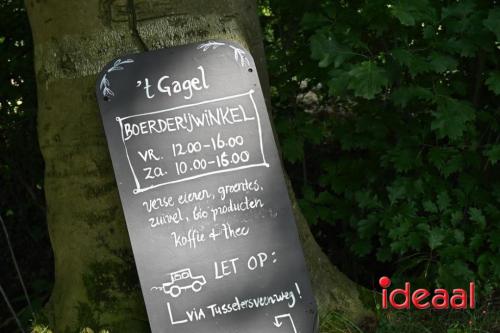 't Gagel
BOERDERIJWINKEL
VR. 12.00-16.00
ZA. 10.00-16.00
verse eieren, groentes,
zuivel, bio producten
koffie & thee
LET OP:
VIA Tusselerveenweg!
ideaal